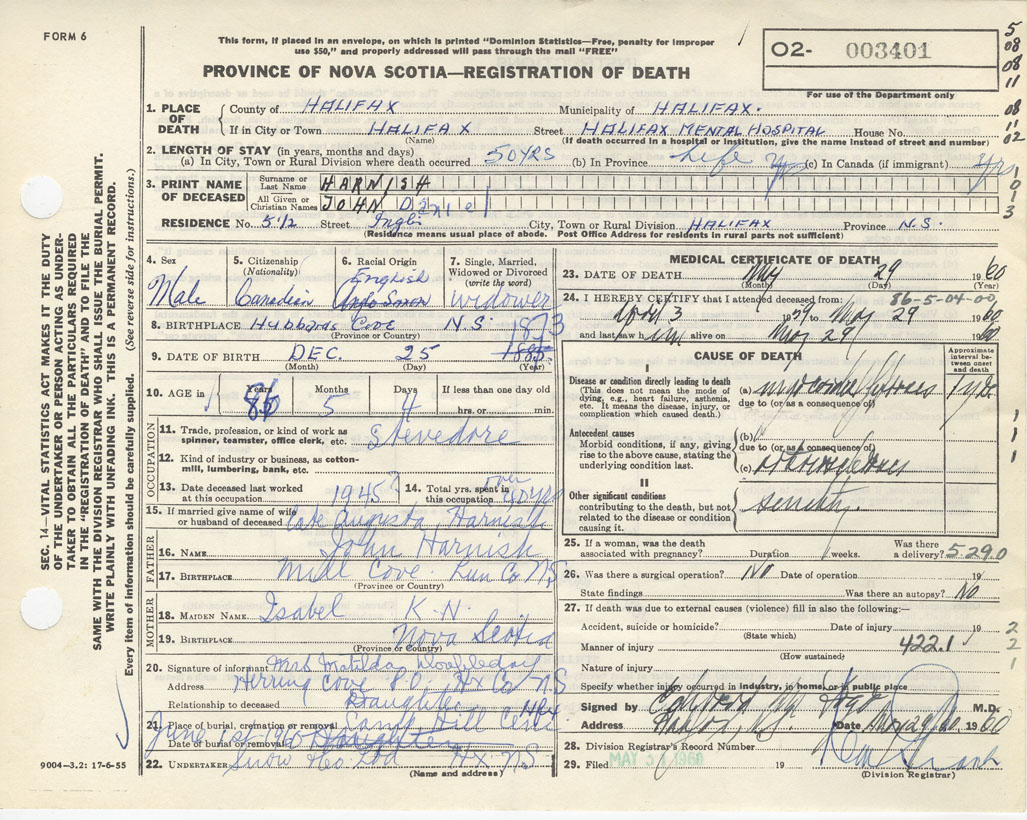 FORM 6
This form, if placed in an envelope, on which is printed "Dominion Statistics—Free, penalty for improper
use $50," and properly addressed will pass through the mail "FREE"
PROVINCE OF NOVA SCOTIA—REGISTRATION OF DEATH
O2- 003401
For use of the Department only
5
08
08
11
08
11
02
1. PLACE OF DEATH
County of HALIFAX Municipality of HALIFAX.
If in City or Town HALIFAX Street HALIFAX MENTAL HOSPITAL House No.
(Name) (If death occurred in a hospital or institution, give the name instead of street and number)
2. LENGTH OF STAY (in years, months and days)
(a) In City, Town or Rural Division where death occurred 50 YRS (b) In Province Life (c) In Canada (if immigrant)
3. PRINT NAME OF DECEASED
Surname or Last Name HARNISH
All Given or Christian Names JOHN Daniel
1
0
1
3
RESIDENCE No. 512 Street Inglis City, Town or Rural Division HALIFAX Province N.S.
(Residence means usual place of abode. Post Office Address for residents in rural parts not sufficient)
4. Sex Male
5. Citizenship (Nationality) Canadian
6. Racial Origin English
7. Single, Married, Widowed or Divorced (write the word) widower
8. BIRTHPLACE Hubbards Cove N.S.
(Province or Country)
9. DATE OF BIRTH DEC. 25 1873
(Month) (Day) (Year)
10. AGE in Years 86 Months 5 Days 4 If less than one day old
hrs. or min.
OCCUPATION
11. Trade, profession, or kind of work as spinner, teamster, office clerk, etc. Stevedore
12. Kind of industry or business, as cotton-mill, lumbering, bank, etc.
13. Date deceased last worked at this occupation 1945?
14. Total yrs. spent in this occupation over 40 yrs
15. If married give name of wife or husband of deceased Late Augusta Harnish
FATHER
16. NAME John Harnish
17. BIRTHPLACE Mill Cove. Lun Co NS
(Province or Country)
MOTHER
18. MAIDEN NAME Isabel K.N.
19. BIRTHPLACE Nova Scotia
(Province or Country)
20. Signature of informant Mrs Matilda Doubleday
Address Herring Cove P.O. Hx Co NS
Relationship to deceased Daughter
21. Place of burial, cremation or removal Sandy Hill Hfx
Date of burial or removal June 1st 1960
22. UNDERTAKER Snow Co. Ltd Hx. N.S
(Name and address)
9004—3.2: 17-6-55
MEDICAL CERTIFICATE OF DEATH
23. DATE OF DEATH May 29 1960
(Month) (Day) (Year)
24. I HEREBY CERTIFY that I attended deceased from: 86-5-04-00
April 3 1959 to May 29 1960
and last saw him alive on May 29 1960
CAUSE OF DEATH
Approximate interval between onset and death
I
Disease or condition directly leading to death
(This does not mean the mode of dying, e.g., heart failure, asthenia, etc. It means the disease, injury, or complication which caused death.)
(a)
due to (or as a consequence of)
Antecedent causes
Morbid conditions, if any, giving rise to the above cause, stating the underlying condition last.
(b)
due to (or as a consequence of)
(c)
II
Other significant conditions
contributing to the death, but not related to the disease or condition causing it.
Senility.
25. If a woman, was the death associated with pregnancy? Duration weeks. Was there a delivery? 5290
26. Was there a surgical operation? NO Date of operation 19
State findings Was there an autopsy? No
27. If death was due to external causes (violence) fill in also the following:—
Accident, suicide or homicide? Date of injury 19
(State which)
Manner of injury 422.1
(How sustained)
Nature of injury
Specify whether injury occurred in industry, in home, or in public place
Signed by M.D.
Address Halifax, N.S. Date May 29/60 1960
28. Division Registrar's Record Number
29. Filed MAY 31 1960 19
(Division Registrar)
1
1
1
1
2
2
1
SEC. 14—VITAL STATISTICS ACT MAKES IT THE DUTY
OF THE UNDERTAKER OR PERSON ACTING AS UNDER-
TAKER TO OBTAIN ALL THE PARTICULARS REQUIRED
IN THE "REGISTRATION OF DEATH" AND TO FILE THE
SAME WITH THE DIVISION REGISTRAR WHO SHALL ISSUE THE BURIAL PERMIT.
WRITE PLAINLY WITH UNFADING INK. THIS IS A PERMANENT RECORD.
Every item of information should be carefully supplied. (See reverse side for instructions.)